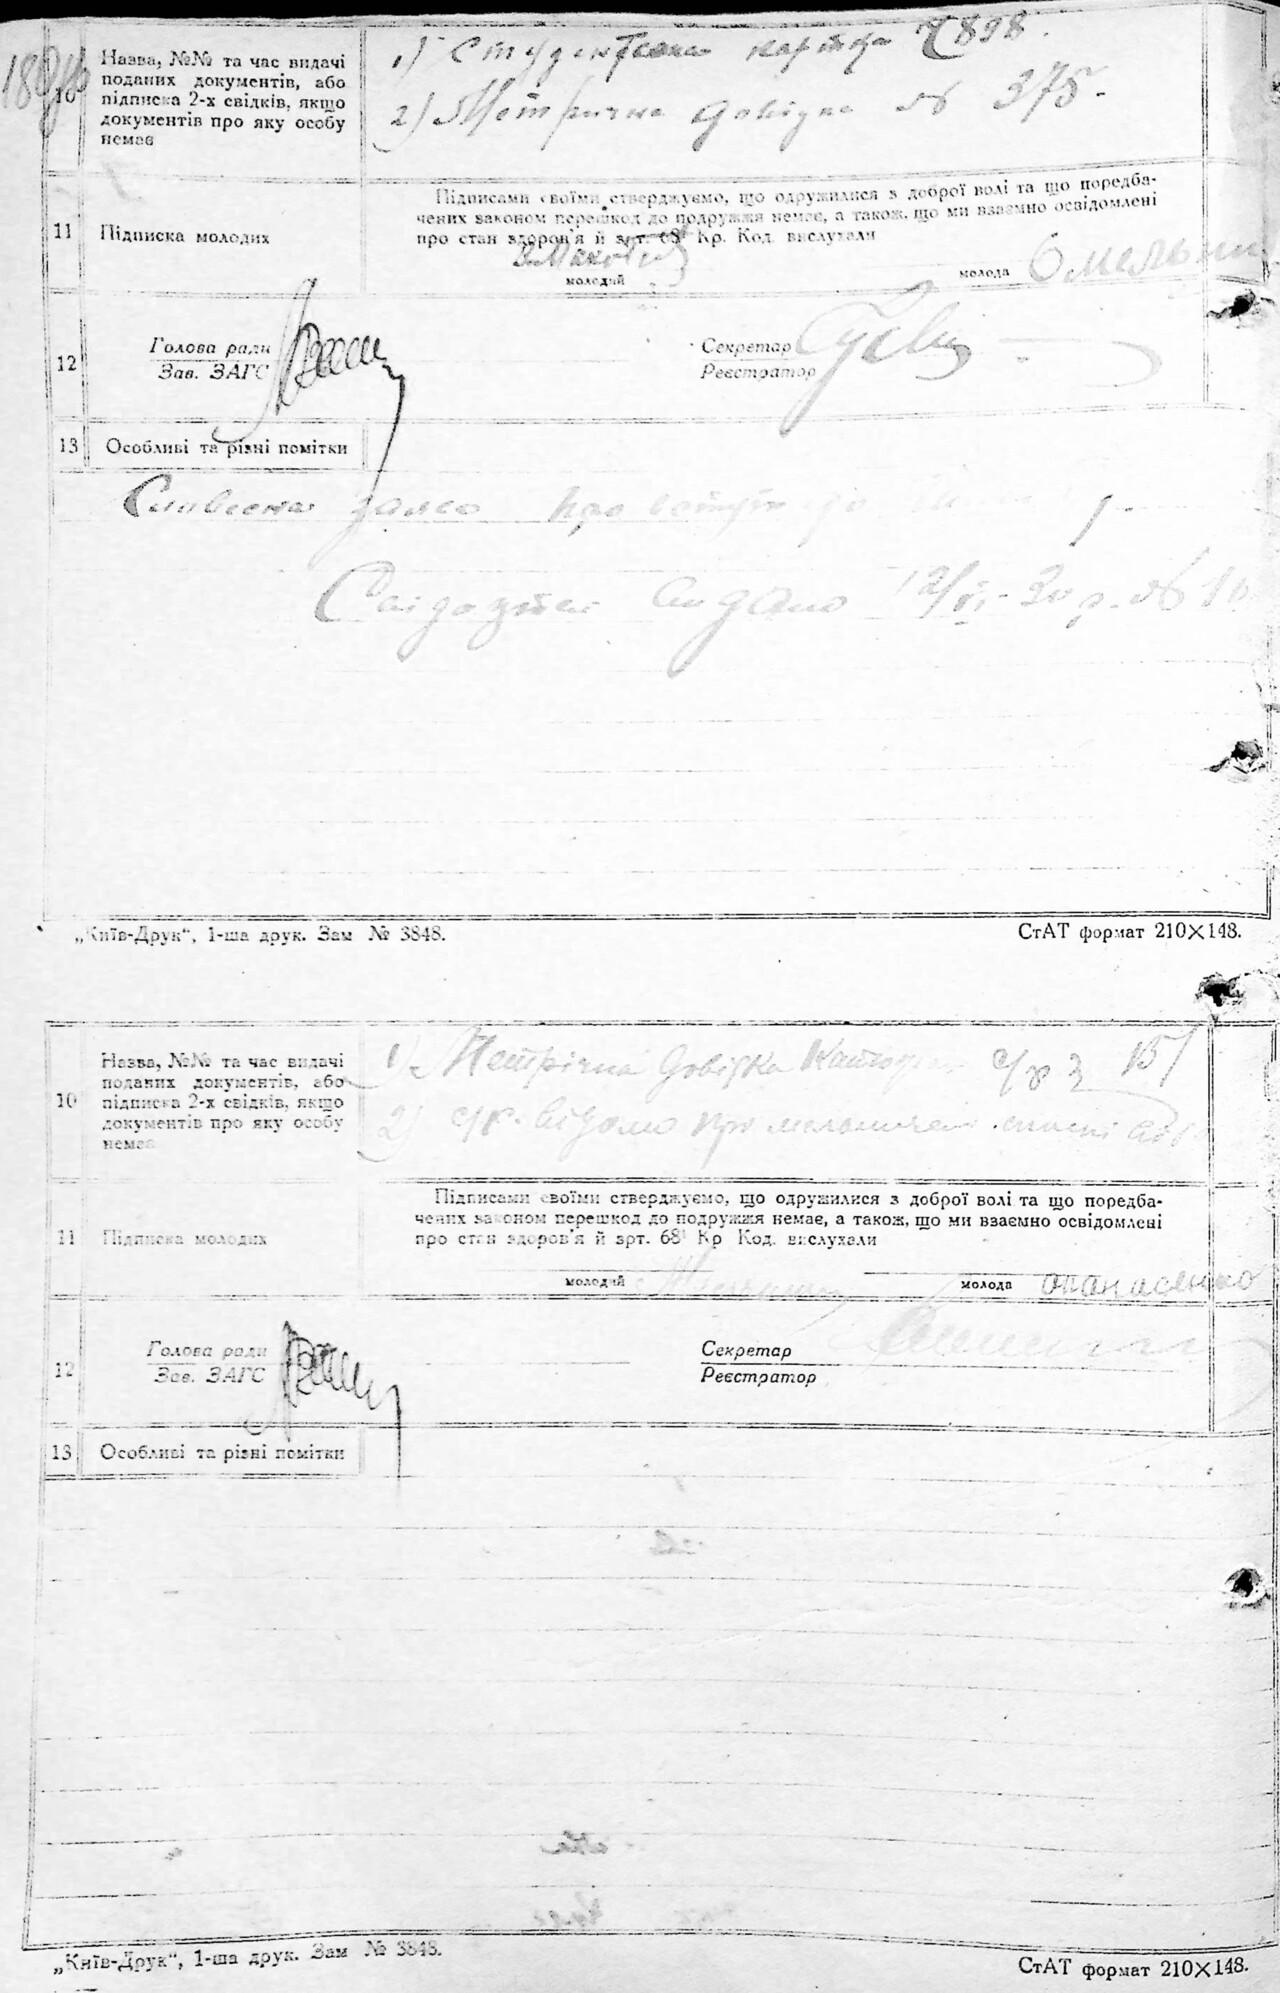 189
10
Назва, №№ та час видачі
поданих документів, або
підписка 2-х свідків, якщо
документів про яку особу
немає
1) Студентська картка 7898.
2) Метрична довідка № 375.
11
Підписка молодих
Підписами своїми стверджуємо, що одружилися з доброї волі та що передба-
чених законом перешкод до подружжя немає, а також, що ми взаємно освідомлені
про стан здоров'я й арт. 68¹ Кр. Код. вислухали
молодий
молода Омельчи
12
Голова ради
Зав. ЗАГС
Секретар
Реєстратор
13
Особливі та різні помітки
Словесна заява про вступ до
Свідоцтво видано 12/VI-30 р. № 10
„Київ-Друк“, 1-ша друк. Зам № 3848.
СтАТ формат 210×148.
10
Назва, №№ та час видачі
поданих документів, або
підписка 2-х свідків, якщо
документів про яку особу
немає
1) Метрічна довідка с/р з 151
2) с/р. відомо про
11
Підписка молодих
Підписами своїми стверджуємо, що одружилися з доброї волі та що передба-
чених законом перешкод до подружжя немає, а також, що ми взаємно освідомлені
про стан здоров'я й арт. 68¹ Кр Код. вислухали
молодий
молода опанасенко
12
Голова ради
Зав. ЗАГС
Секретар
Реєстратор
13
Особливі та різні помітки
„Київ-Друк“, 1-ша друк. Зам № 3848.
СтАТ формат 210×148.